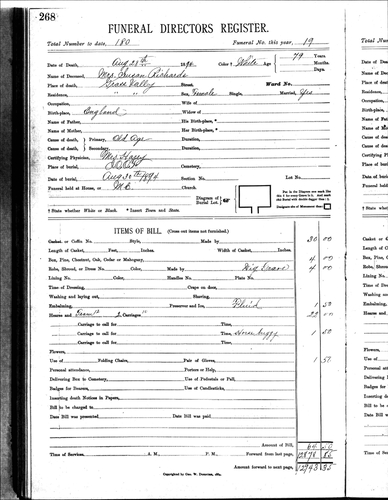 268
FUNERAL DIRECTORS REGISTER.
Total Number to date, 180 Funeral No. this year, 19
Date of Death, Aug 28th 1894 Color † White Age 79 Years. Months. Days.
Name of Deceased, Mrs. Susan Richards
Grass Valley Street, Ward No.
Residence, " " Sex, Female Single, Married, Yes
Occupation, Wife of
Birth-place, England Widow of
Name of Father, His Birth-place, *
Name of Mother, Her Birth-place, *
Cause of death, Primary, Old Age Duration,
Cause of death, Secondary, Duration,
Certifying Physician,
Place of burial, Cemetery,
Date of burial, Aug 30th 1894 Section No. Lot No.
Funeral held at Home, or M.E. Church.
Diagram of Burial Lot.
† State whether White or Black. * Insert Town and State.
ITEMS OF BILL. (Cross out items not furnished.)
Casket or Coffin No. Style, Made by 30 00
Length of Casket, Feet, Inches. Width of Casket, Inches.
Box, Pine, Chestnut, Oak, Cedar or Mahogany, 4 00
Robe, Shroud, or Dress No. Color, Made by Dig Grave 4 00
Lining No. Color, Handles No. Plate No.
Time of Dressing, Crape on door,
Washing and laying out, Shaving,
Embalming, Preserver and Ice, Fluid 1 50
Hearse and Carriages 22 00
Carriage to call for Time,
Carriage to call for Time, Horse buggy 1 50
Carriage to call for Time,
Flowers,
Use of Folding Chairs, Pair of Gloves, 1 50
Personal attendance, Porters or Help,
Delivering Box to Cemetery, Use of Pedestals or Pall,
Badges for Bearers, Use of Candlesticks,
Inserting death Notices in Papers,
Bill to be charged to
Date Bill was presented Date Bill was paid
Amount of Bill, 64 50
Time of Services A. M., P. M. Forward from last page,
Amount forward to next page,